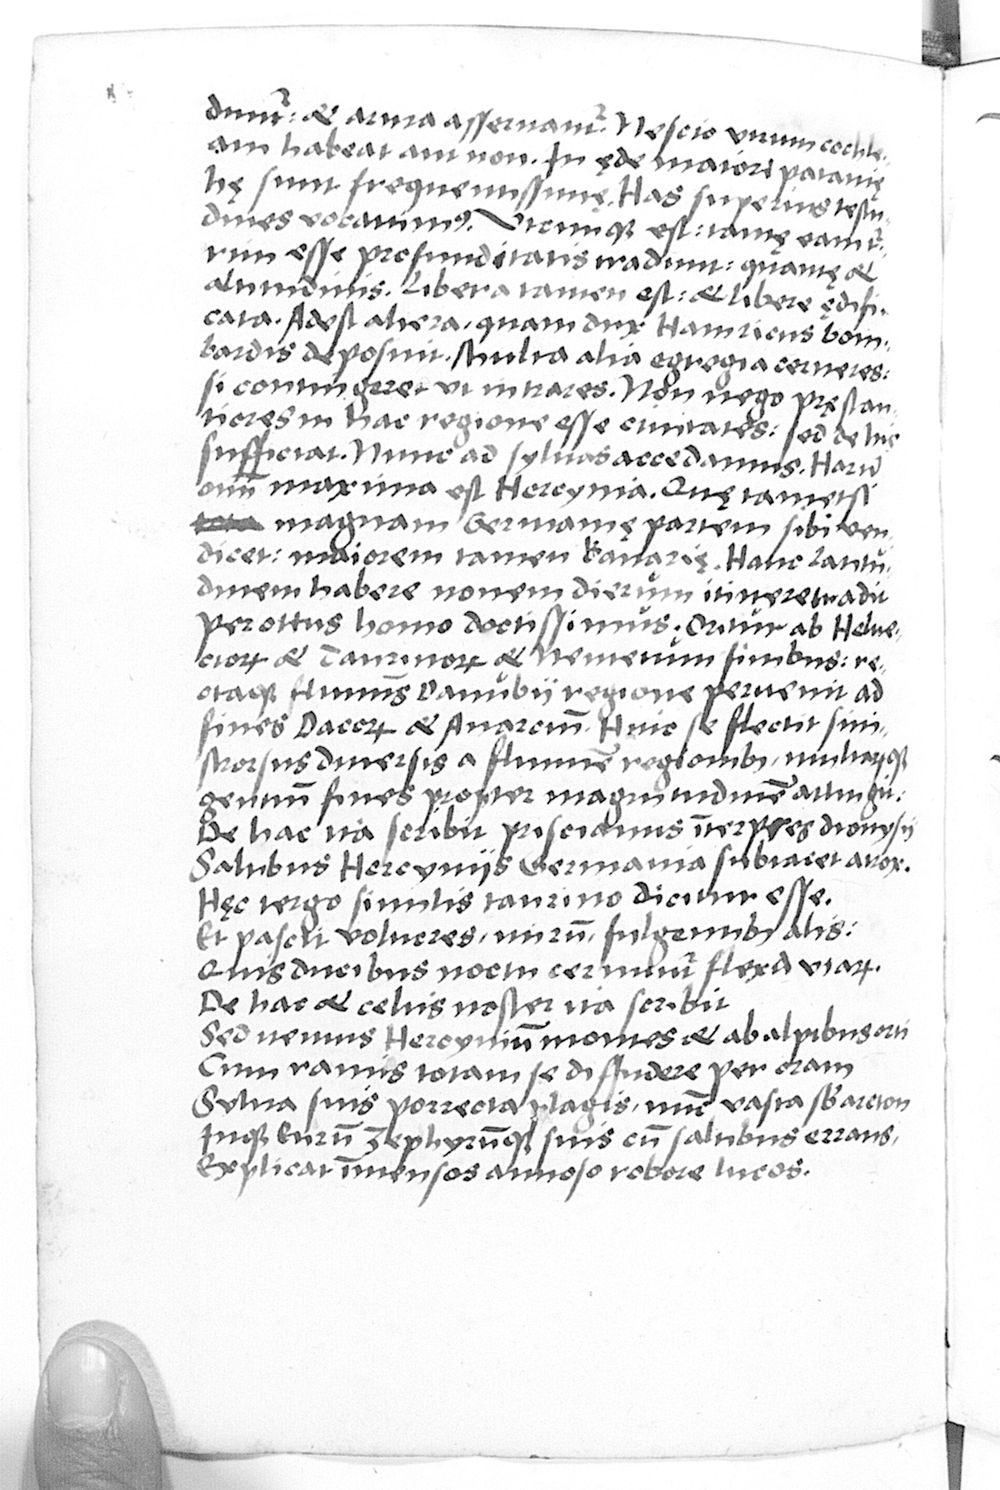 duntr̄: & arma asseruantr̄. Nescio vtrum cochle-
am habeat aut non. In ęde maiori patauię
hę sunt frequentissimę. Has superius testu-
dines vocauimꝰ. Vtcunqꝫ est: tamę eam tr̄-
rim esse profunditatis tradunt: quantę &
altitudinis. Libera tamen est: & libere ędifi-
cata. Adest altera, quam dux Hainricus bom-
bardis deposuit. Multa alia egregia cerneres:
si contingeret vt intrares. Non nego pręstan-
tiores in hac regione esse ciuitates: sed de his
sufficiat. Nunc ad syluas accedamus. Harū
oīm̄ maxima est Hercynia. Quę tametsi
magnam Germanię partem sibi ven-
dicet: maiorem tamen Bauarię. Hanc latitu-
dinem habere nouem dierum itinere tradit
Perottus homo doctissimus. Oritur ab Helue-
ciorꝝ & Taurinorꝝ & Nemetum finibus: re-
ctaqꝫ fluminīs Danubij regione peruenit ad
fines Dacorꝝ & Anarciū. Hinc se flectit sini-
strorsus diuersis a flumīe regionibꝫ, multarūqꝫ
gentiū fines propter magnitudinē attingit:
De hac ita scribit priscianus īterpres dionysij
Saltibus Hercynijs Germania subiacet atrox.
Hęc tergo similis taurino dicitur esse.
Et pascit volucres, mirū, fulgentibꝫ alis:
Quis ducibus noctu cernuntr̄ flexa viarꝝ.
De hac & celtis noster ita scribit
Sed nemus Hercyniū montes & ab alpibus orti
Cum ramis totam se diffudere per oram
Sylua suis porrecta plagis, nūc vasta sb̄ arcton
Inqꝫ Eurū Zephyrūqꝫ suis cū saltibus errans,
Explicat īmensos annoso robore lucos.